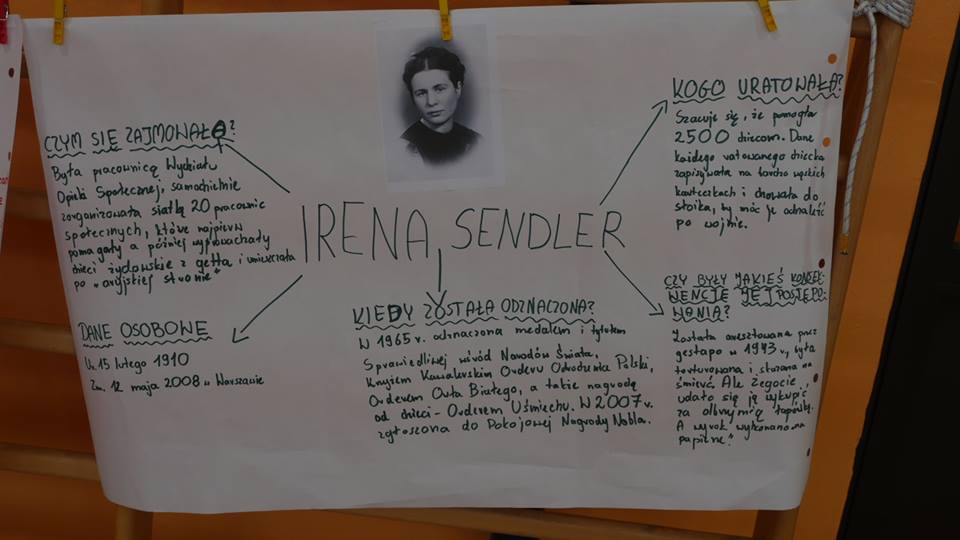 CZYM SIĘ ZAJMOWAŁA?
Była pracownicą Wydziału
Opieki Społecznej, samodzielnie
zorganizowała siatkę 20 pracownic
społecznych, które najpierw
pomagały a później wyprowadzały
dzieci żydowskie z getta i umieszczała
po "aryjskiej stronie"
DANE OSOBOWE
Ur. 15 lutego 1910
Zm. 12 maja 2008 w Warszawie
IRENA SENDLER
KIEDY ZOSTAŁA ODZNACZONA?
W 1965 r. odznaczona medalem i tytułem
Sprawiedliwej wśród Narodów Świata,
Krzyżem Kawalerskim Orderu Odrodzenia Polski,
Orderem Orła Białego, a także nagrodą
od dzieci - Orderem Uśmiechu. W 2007 r.
zgłoszona do Pokojowej Nagrody Nobla.
KOGO URATOWAŁA?
Szacuje się, że pomogła
2500 dzieciom. Dane
każdego ratowanego dziecka
zapisywała na bardzo wąskich
karteczkach i chowała do
słoika, by móc je odnaleźć
po wojnie.
CZY BYŁY JAKIEŚ KONSEK-
WENCJE JEJ POSTĘPO-
WANIA?
Została aresztowana przez
gestapo w 1943 r., była
torturowana i skazana na
śmierć. Ale Żegocie
udało się ją wykupić
za olbrzymią łapówkę.
A wyrok wykonano "na
papierze".